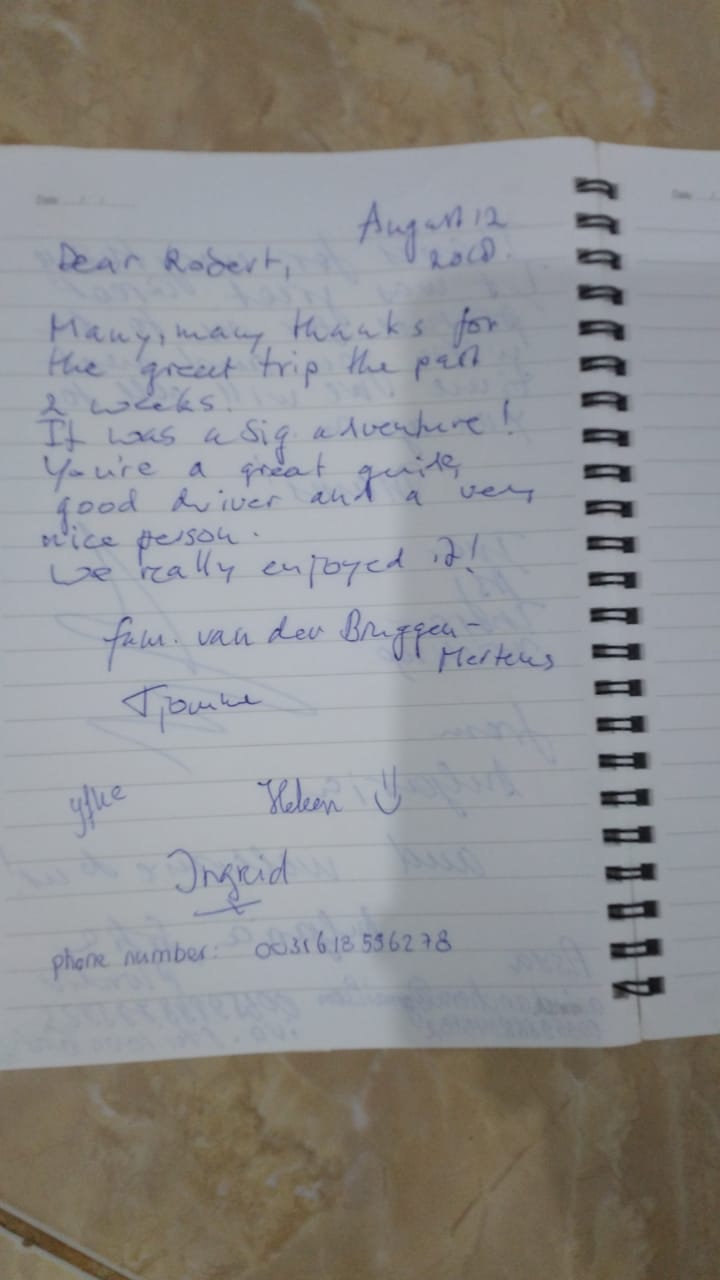 August 12
2018.
Dear Robert,
Many, many thanks for
the great trip the past
2 weeks.
It was a big adventure!
You're a great guide,
good driver and a very
nice person.
We really enjoyed it!
fam. van der Bruggen-
Mertens
Tjomme
yfke
Heleen
Ingrid
phone number: 0031618596278